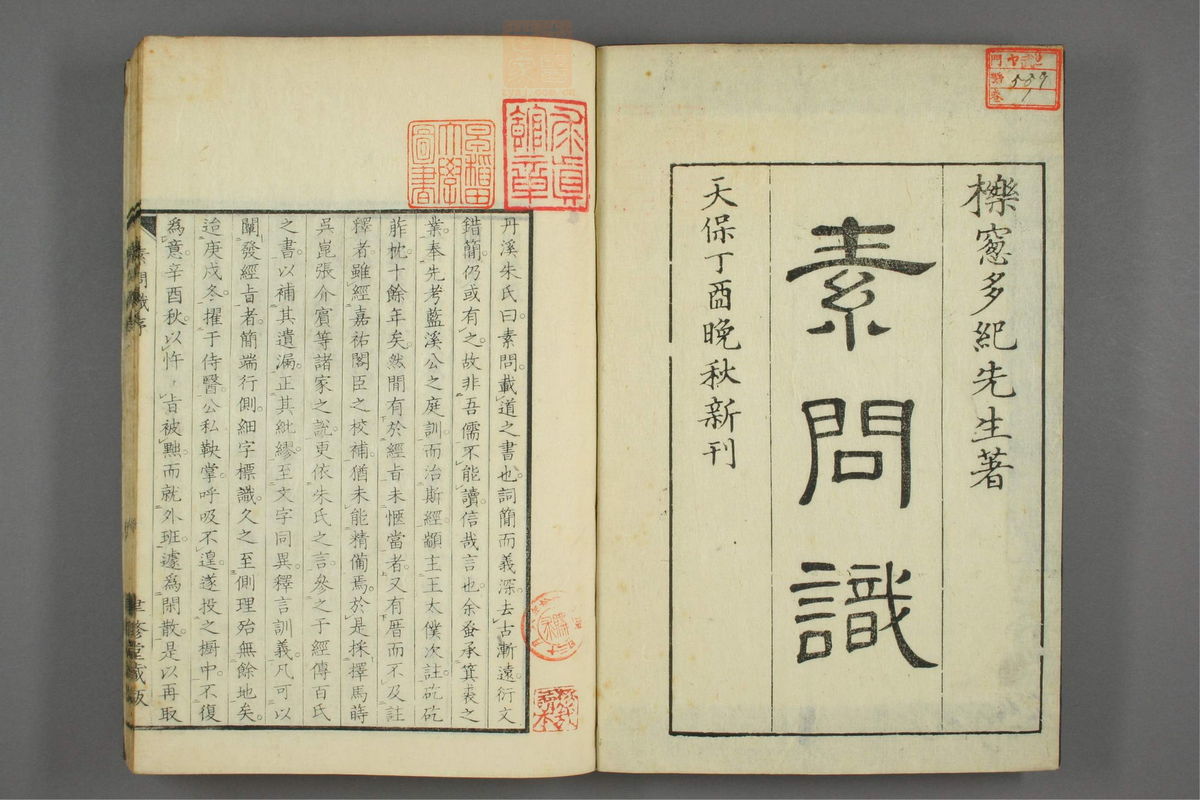 櫟窻多紀先生著
素問識
天保丁酉晚秋新刊
丹溪朱氏曰素問載道之書也詞簡而義深去古漸遠衍文
錯簡仍或有之故非吾儒不能讀信哉言也余蚤承箕裘之
業奉先考藍溪公之庭訓而治斯經顓主王太僕次註矻矻
葄枕十餘年矣然間有於經旨未愜當者又有厝而不及註
釋者雖經嘉祐閣臣之校補猶未能精備焉於是採擇馬蒔
吳崑張介賓等諸家之說更依朱氏之言參之于經傳百氏
之書以補其遺漏正其紕繆至文字同異釋言訓義凡可以
闡發經旨者簡端行側細字標識久之至側理殆無餘地矣
迨庚戌冬擢于侍醫公私鞅掌呼吸不遑遂投之櫥中不復
為意辛酉秋以忤旨被黜而就外班遽為閑散是以再取
素問識序
聿修堂藏版
早稻田大學圖書
館章
門
號
卷